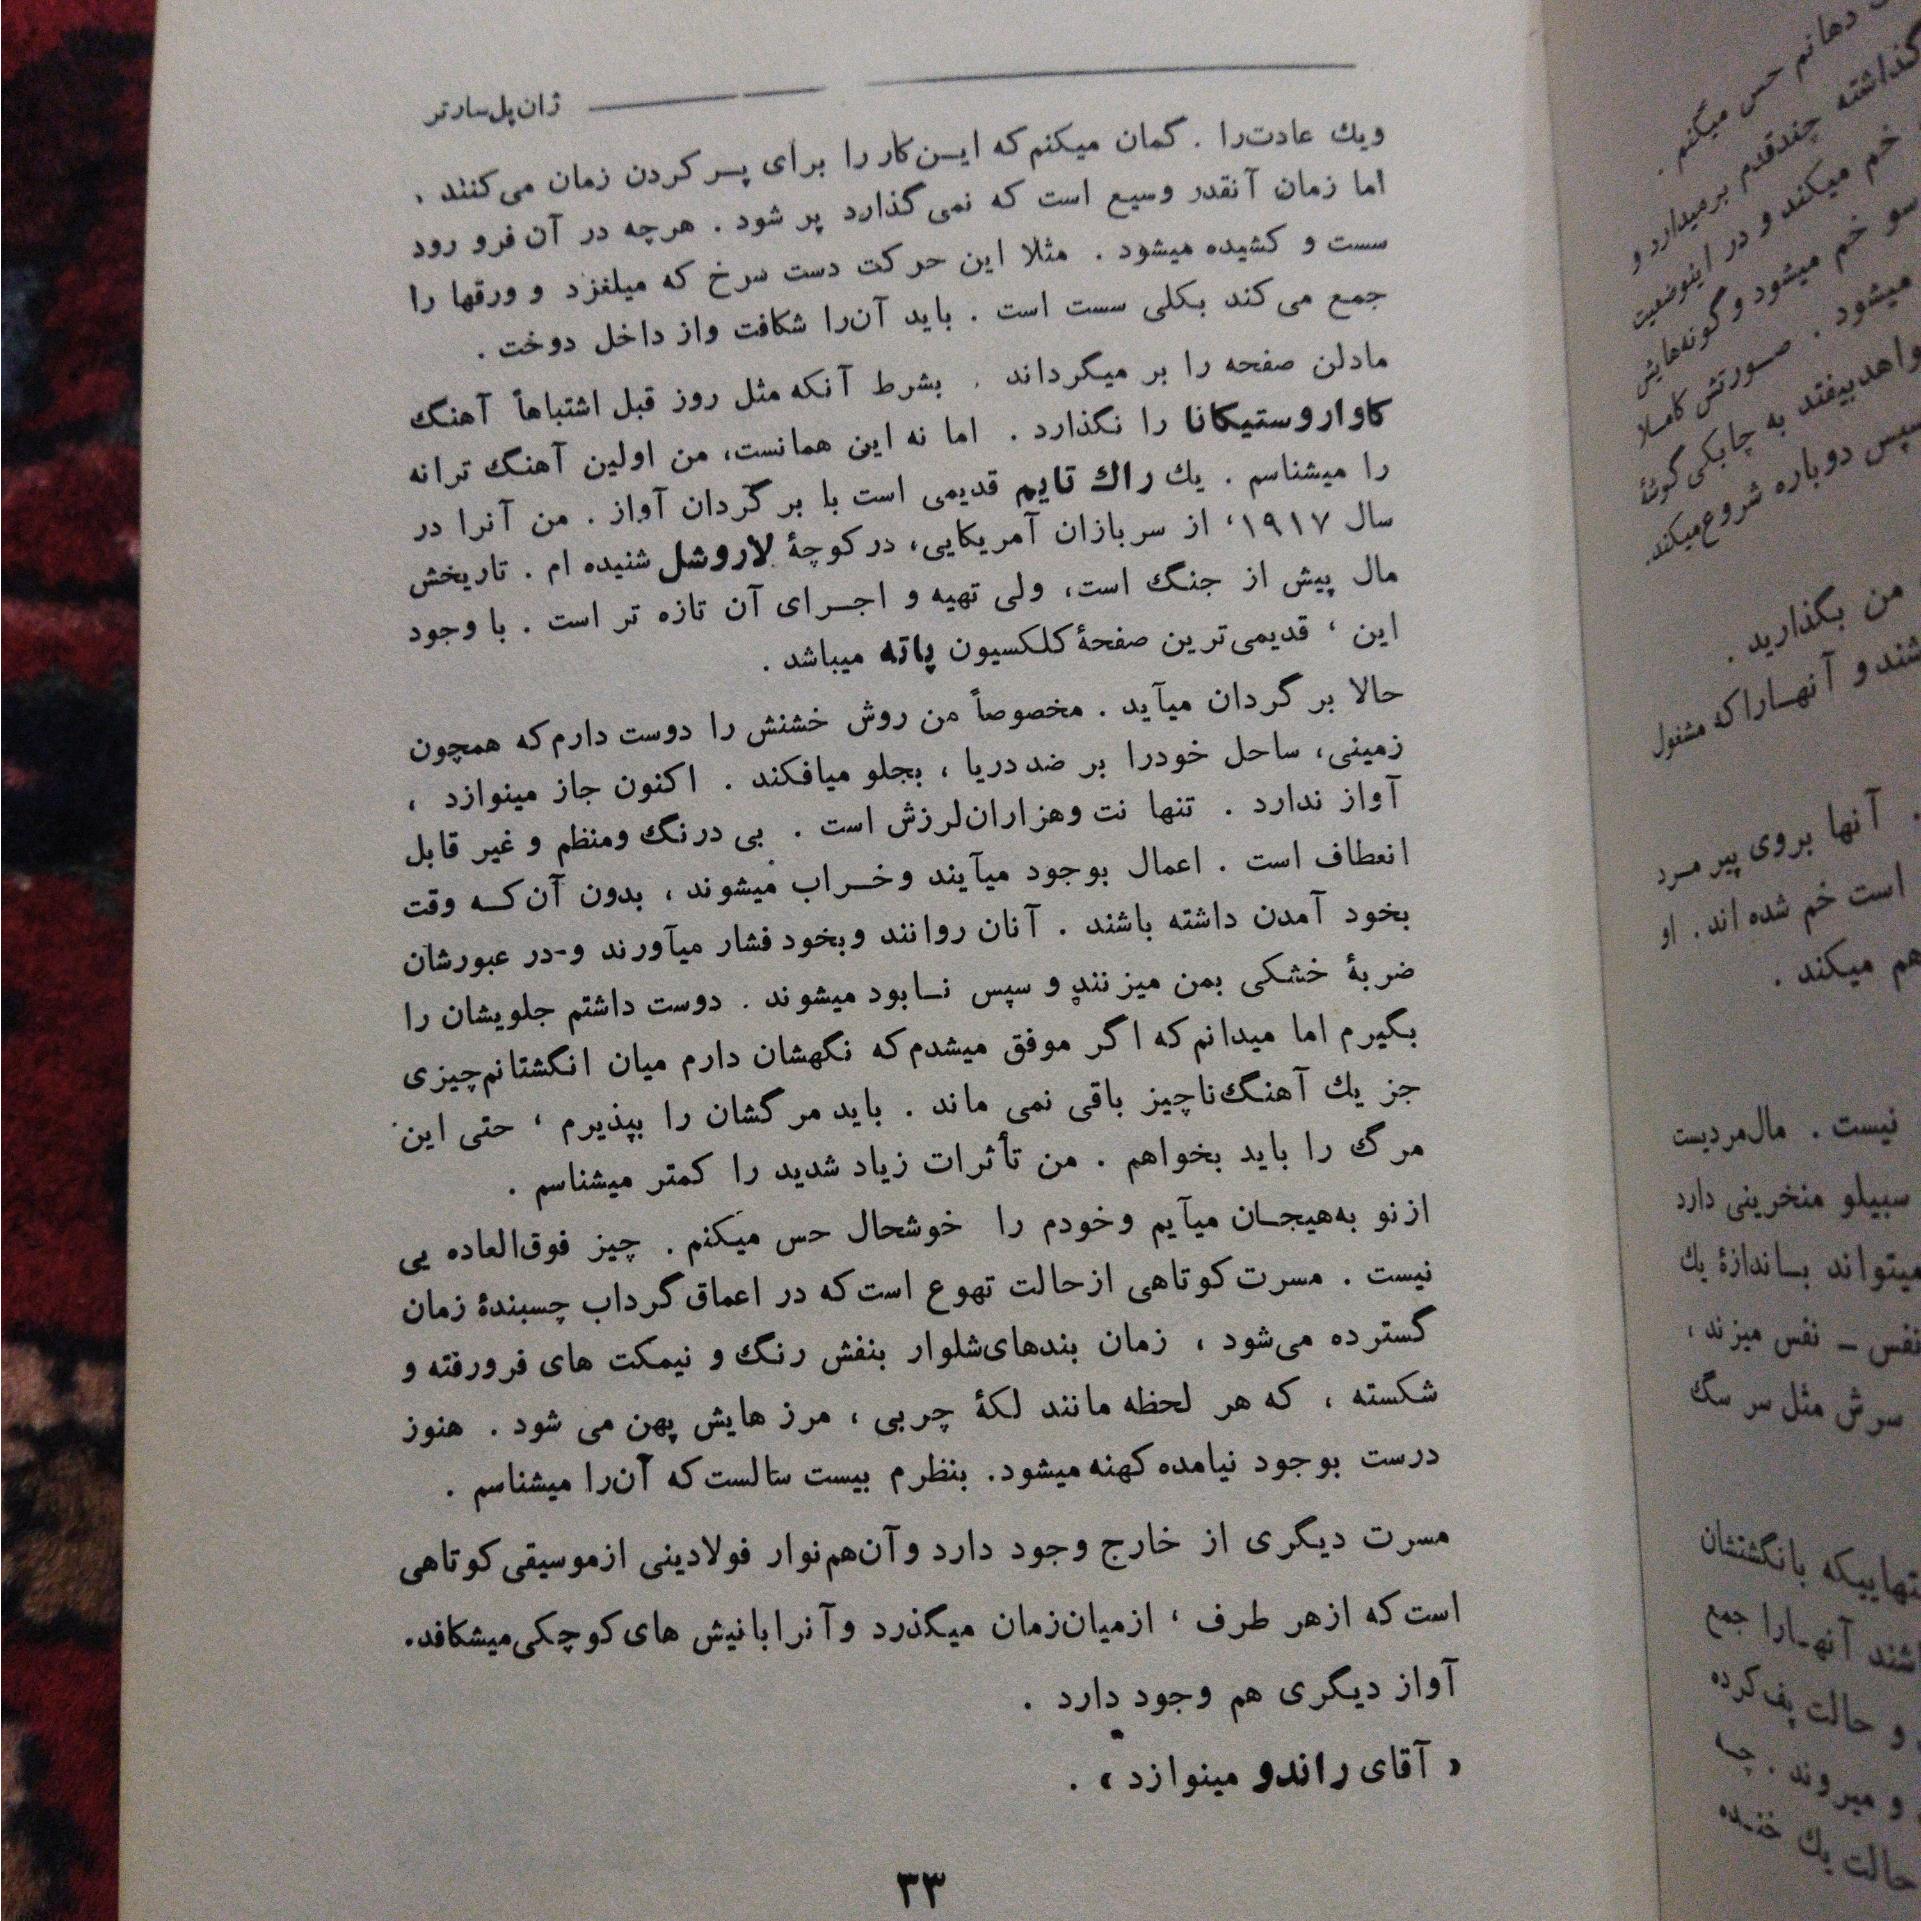 ژان پل سارتر
ویك عادت‌را . گمان میکنم که ایـن کار را برای پـر کردن زمان می کنند ،
اما زمان آنقدر وسیع است که نمی گذارد پر شود . هرچه در آن فرو رود
سست و کشیده میشود . مثلا این حرکت دست سرخ که میلغزد و ورقها را
جمع می کند بکلی سست است . باید آن‌را شکافت واز داخل دوخت .
مادلن صفحه را بر میگرداند . بشرط آنکه مثل روز قبل اشتباهاً آهنگ
کاواروستیکانا را نگذارد . اما نه این همانست، من اولین آهنگ ترانه
را میشناسم . یك راك تایم قدیمی است با بر گردان آواز . من آنرا در
سال ۱۹۱۷، از سربازان آمریکایی، در کوچهٔ لاروشل شنیده ام . تاریخش
مال پیش از جنگ است، ولی تهیه و اجـرای آن تازه تر است . با وجود
این ، قدیمی‌ترین صفحهٔ کلکسیون پاته میباشد .
حالا بر گردان میآید . مخصوصاً من روش خشنش را دوست دارم که همچون
زمینی، ساحل خودرا بر ضد دریا ، بجلو میافکند . اکنون جاز مینوازد ،
آواز ندارد . تنها نت وهزاران‌لرزش است . بی درنگ ومنظم و غیر قابل
انعطاف است . اعمال بوجود میآیند وخـراب میشوند ، بدون آن کـه وقت
بخود آمدن داشته باشند . آنان روانند وبخود فشار میآورند و-در عبورشان
ضربهٔ خشکی بمن میزنند و سپس نـابود میشوند . دوست داشتم جلویشان را
بگیرم اما میدانم که اگر موفق میشدم که نگهشان دارم میان انگشتانم‌چیزی
جز یك آهنگ ناچیز باقی نمی ماند . باید مرگشان را بپذیرم ، حتی این
مرگ را باید بخواهم . من تأثرات زیاد شدید را کمتر میشناسم .
ازنو به‌هیجـان میآیم وخودم را خوشحال حس میکنم . چیز فوق‌العاده یی
نیست . مسرت کوتاهی ازحالت تهوع است که در اعماق گرداب چسبندهٔ زمان
گسترده می‌شود ، زمان بندهای‌شلوار بنفش رنگ و نیمکت های فرورفته و
شکسته ، که هر لحظه مانند لکهٔ چربی ، مرز هایش پهن می شود . هنوز
درست بوجود نیامده کهنه میشود. بنظرم بیست سالست که آن‌را میشناسم .
مسرت دیگری از خارج وجود دارد وآن‌هم‌نوار فولادینی ازموسیقی کوتاهی
است که ازهر طرف ، ازمیان‌زمان میگذرد وآنرابانیش های کوچکی میشکافد.
آواز دیگری هم وجود دارد .
« آقای راندو مینوازد » .
۳۳
دهانم حس میکنم .
گذاشته چندقدم برمیدارد و
خم میکند و در اینوضعیت
سو خم میشود و گونه‌هایش
میشود . صـورتش کامـلا
بیفتد به چابکی گوشهٔ
سپس دوباره شروع میکند.
من بگذارید .
آنهـاراکه مشغول
. آنها بروی پیر مـرد
است خم شده اند . او
هم میکند .
نیست . مال‌مردیست
سبیلو منخرینی دارد
میتواند بـاندازهٔ یك
نفس ــ نفس میزند ،
سرش مثل سر سگ
بانگشتشان
آنهـارا جمع
و حالت پف کرده
و میروند .
حالت یك خنـده